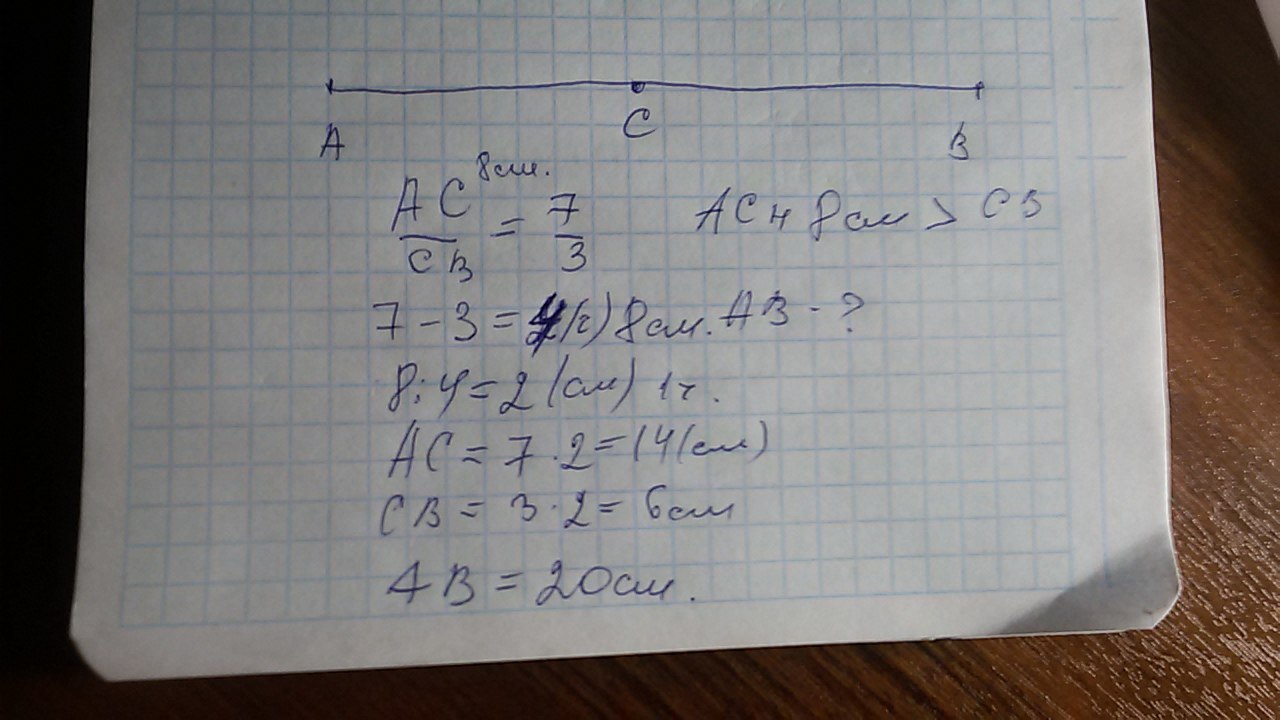 A C B
8см.
AC/CB = 7/3 AC н 8 см > CB
7 - 3 = 4(ч) 8 см. AB - ?
8 : 4 = 2 (см) 1ч.
AC = 7 · 2 = 14 (см)
CB = 3 · 2 = 6 см
AB = 20 см.